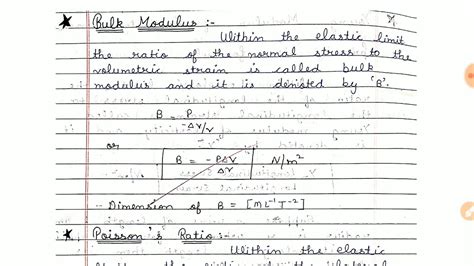 * Bulk Modulus :-
Within the elastic limit
the ratio of the normal stress to the
volumetric strain is called bulk
modulus and it is denoted by 'B'.
B = P
-ΔV/V
or
B = -PΔV N/m²
ΔV
- Dimension of B = [ML⁻¹T⁻²]
* Poisson's Ratio :-
Within the elastic